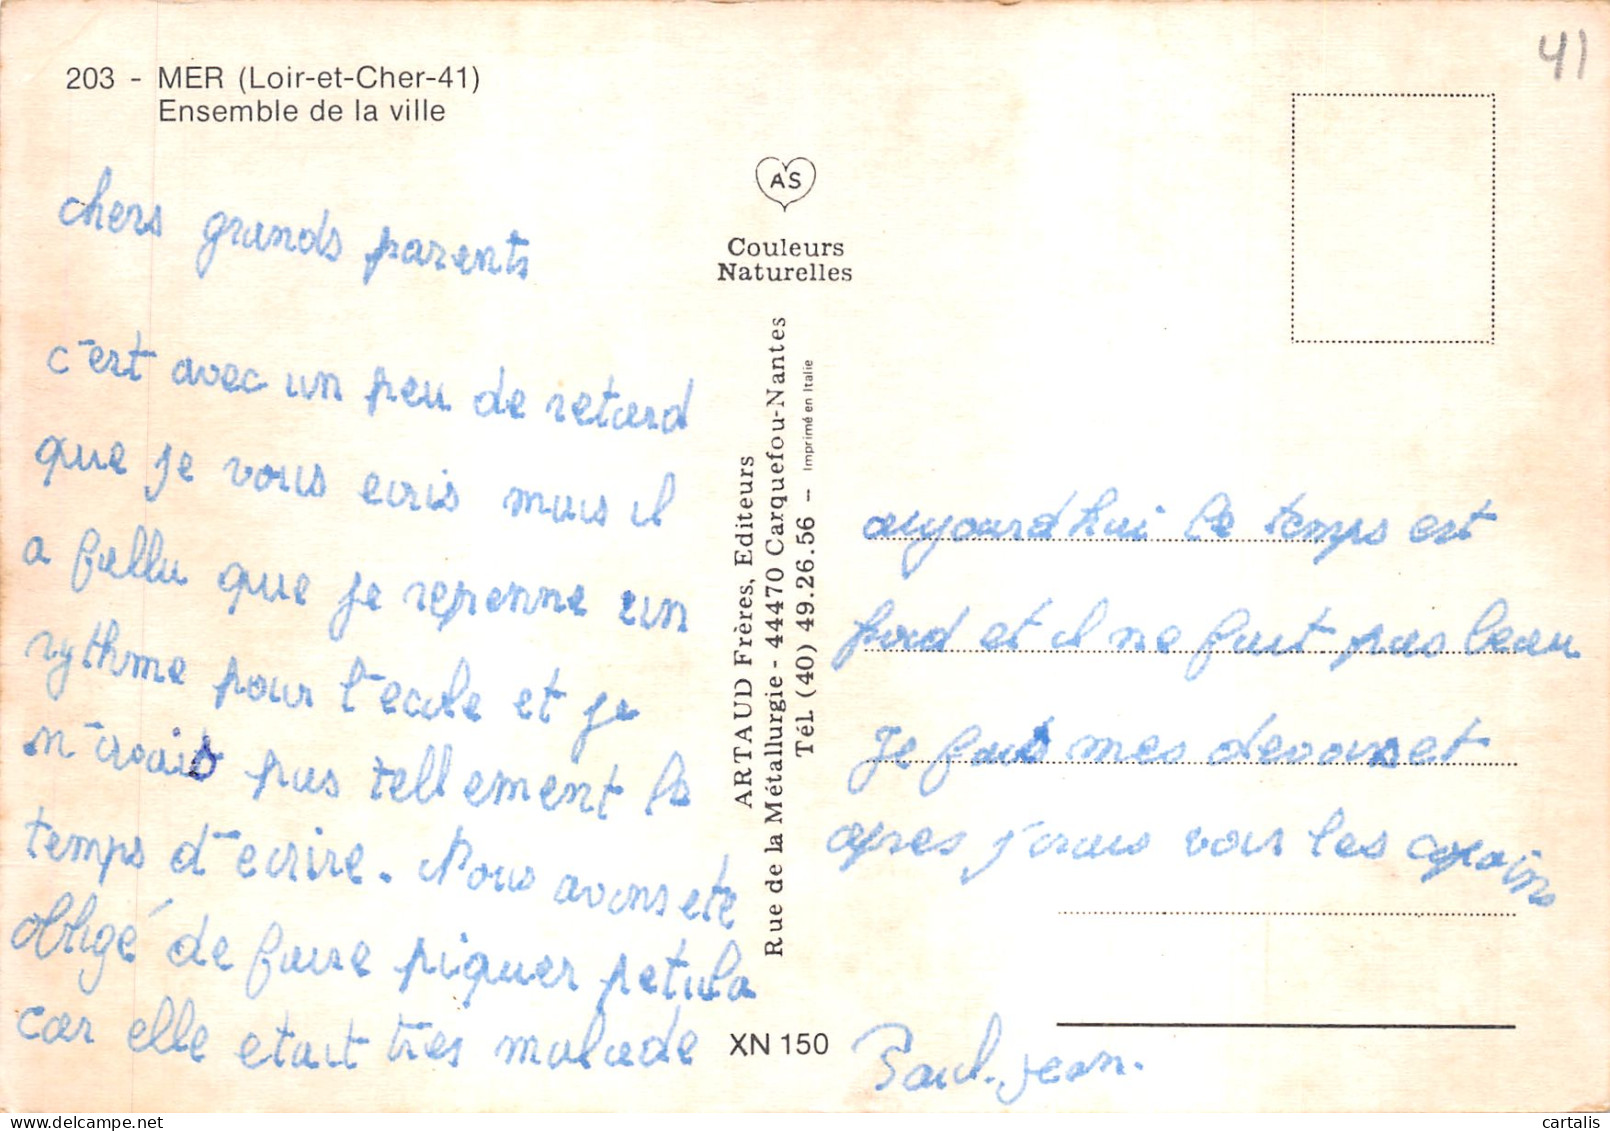 203 - MER (Loir-et-Cher-41)
Ensemble de la ville
41
chers grands parents
c'est avec un peu de retard
que je vous ecris mais il
a fallu que je reprenne un
rythme pour l'ecole et je
n'avais pas tellement le
temps d'ecrire. Nous avons ete
obligé de faire piquer petula
car elle etait très malade
AS
Couleurs
Naturelles
ARTAUD Frères, Editeurs
Rue de la Métallurgie - 44470 Carquefou-Nantes
Tél. (40) 49.26.56 – Imprimé en Italie
XN 150
aujourd'hui le temps est
froid et il ne fait pas beau
Je fais mes devoirs et
apres j'irais voir les copains
Paul. jean.
cartalis